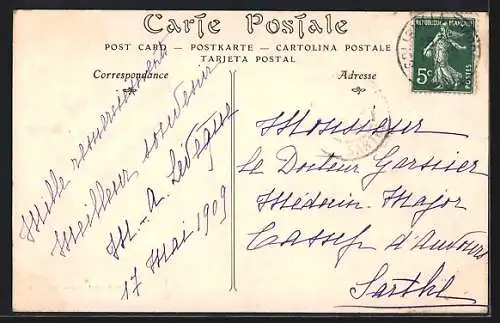 Carte Postale
POST CARD — POSTKARTE — CARTOLINA POSTALE
TARJETA POSTAL
Correspondance
Mille remerciements
Meilleur souvenir
M-A. Levêque
17 Mai 1909
Adresse
Monsieur
le Docteur Garsiier
Médecin-Major
d'Auvours
Sarthe
REPUBLIQUE FRANÇAISE
5c
POSTES
SART